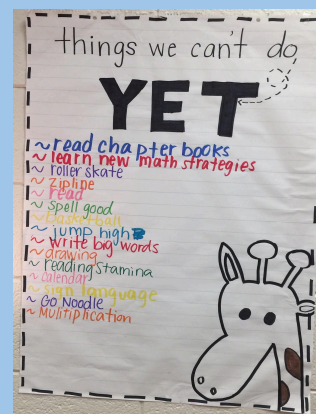 things we can't do
YET
~ read chapter books
~ learn new math strategies
~ roller skate
~ zipline
~ read
~ spell good
~ basketball
~ jump high
~ write big words
~ drawing
~ reading stamina
~ calendar
~ sign language
~ GO Noodle
~ Mulitiplication